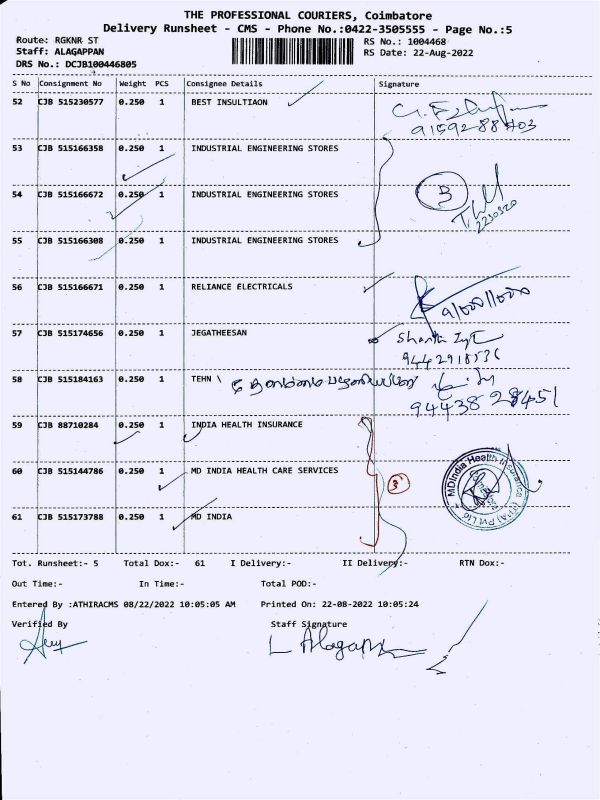 THE PROFESSIONAL COURIERS, Coimbatore
Delivery Runsheet - CMS - Phone No.:0422-3505555 - Page No.:5
Route: RGKNR ST
RS No.: 1004468
Staff: ALAGAPPAN
RS Date: 22-Aug-2022
DRS No.: DCJB100446805
S No Consignment No Weight PCS Consignee Details Signature
52 CJB 515230577 0.250 1 BEST INSULTIAON
53 CJB 515166358 0.250 1 INDUSTRIAL ENGINEERING STORES
54 CJB 515166672 0.250 1 INDUSTRIAL ENGINEERING STORES 3
55 CJB 515166308 0.250 1 INDUSTRIAL ENGINEERING STORES
56 CJB 515166671 0.250 1 RELIANCE ELECTRICALS
57 CJB 515174656 0.250 1 JEGATHEESAN
58 CJB 515184163 0.250 1 TEHN \
94438 28451
59 CJB 88710284 0.250 1 INDIA HEALTH INSURANCE
60 CJB 515144786 0.250 1 MD INDIA HEALTH CARE SERVICES 3
MDIndia Health Insurance (TPA) Pvt Ltd
61 CJB 515173788 0.250 1 MD INDIA
Tot. Runsheet:- 5 Total Dox:- 61 I Delivery:- II Delivery:- RTN Dox:-
Out Time:- In Time:- Total POD:-
Entered By :ATHIRACMS 08/22/2022 10:05:05 AM Printed On: 22-08-2022 10:05:24
Verified By Staff Signature
L Alagappan